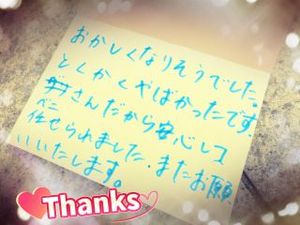 おかしくなりそうでした。
とくかくやばかったです
さんだから安心して
ベニ
任せられました.またお願
いいたします。
Thanks